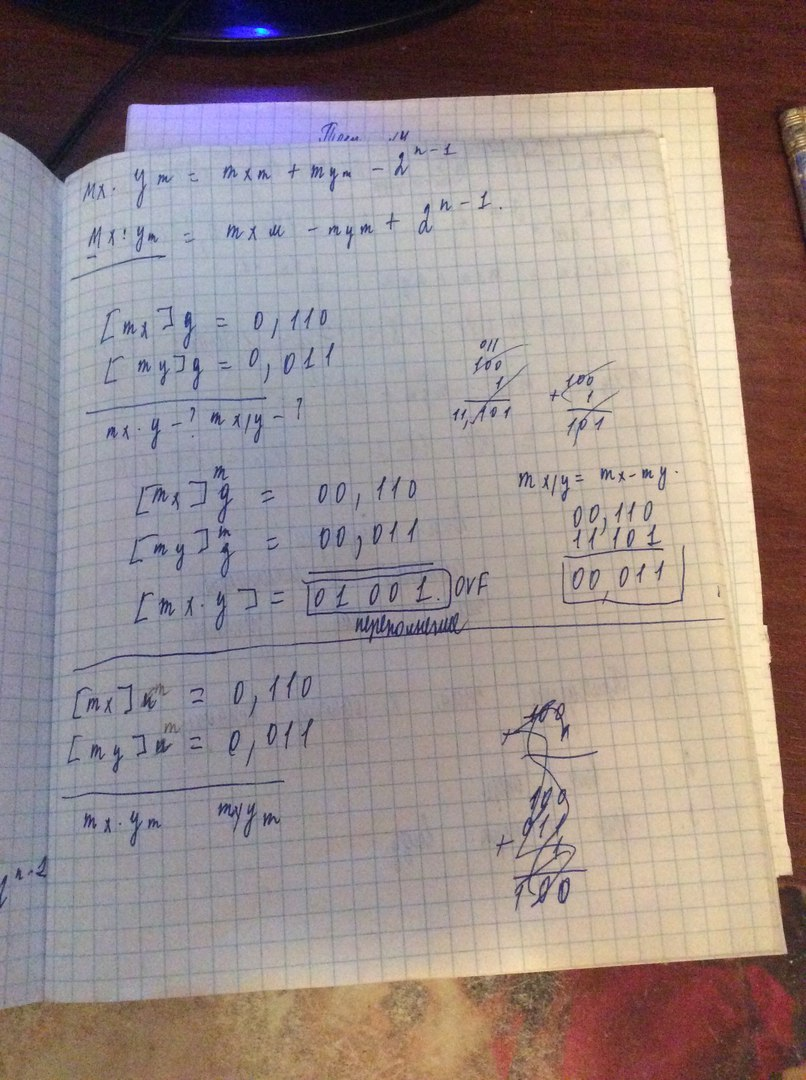 mx·ym = mxm + mym - 2^n-1
Mx:ym = mxм - mym + 2^n-1.
[mx]g = 0,110
[my]g = 0,011
mx·y-? mx/y-?
011
100
1
11,101
+100
1
101
[mx]^m g = 00,110
[my]^m g = 00,011
[mx·y] = 01 001. OVF
переполнение
mx/y = mx-my.
00,110
11 101
00,011
[mx]и^m = 0,110
[my]и^m = 0,011
mx·ym mx/ym
100
+011
1
100